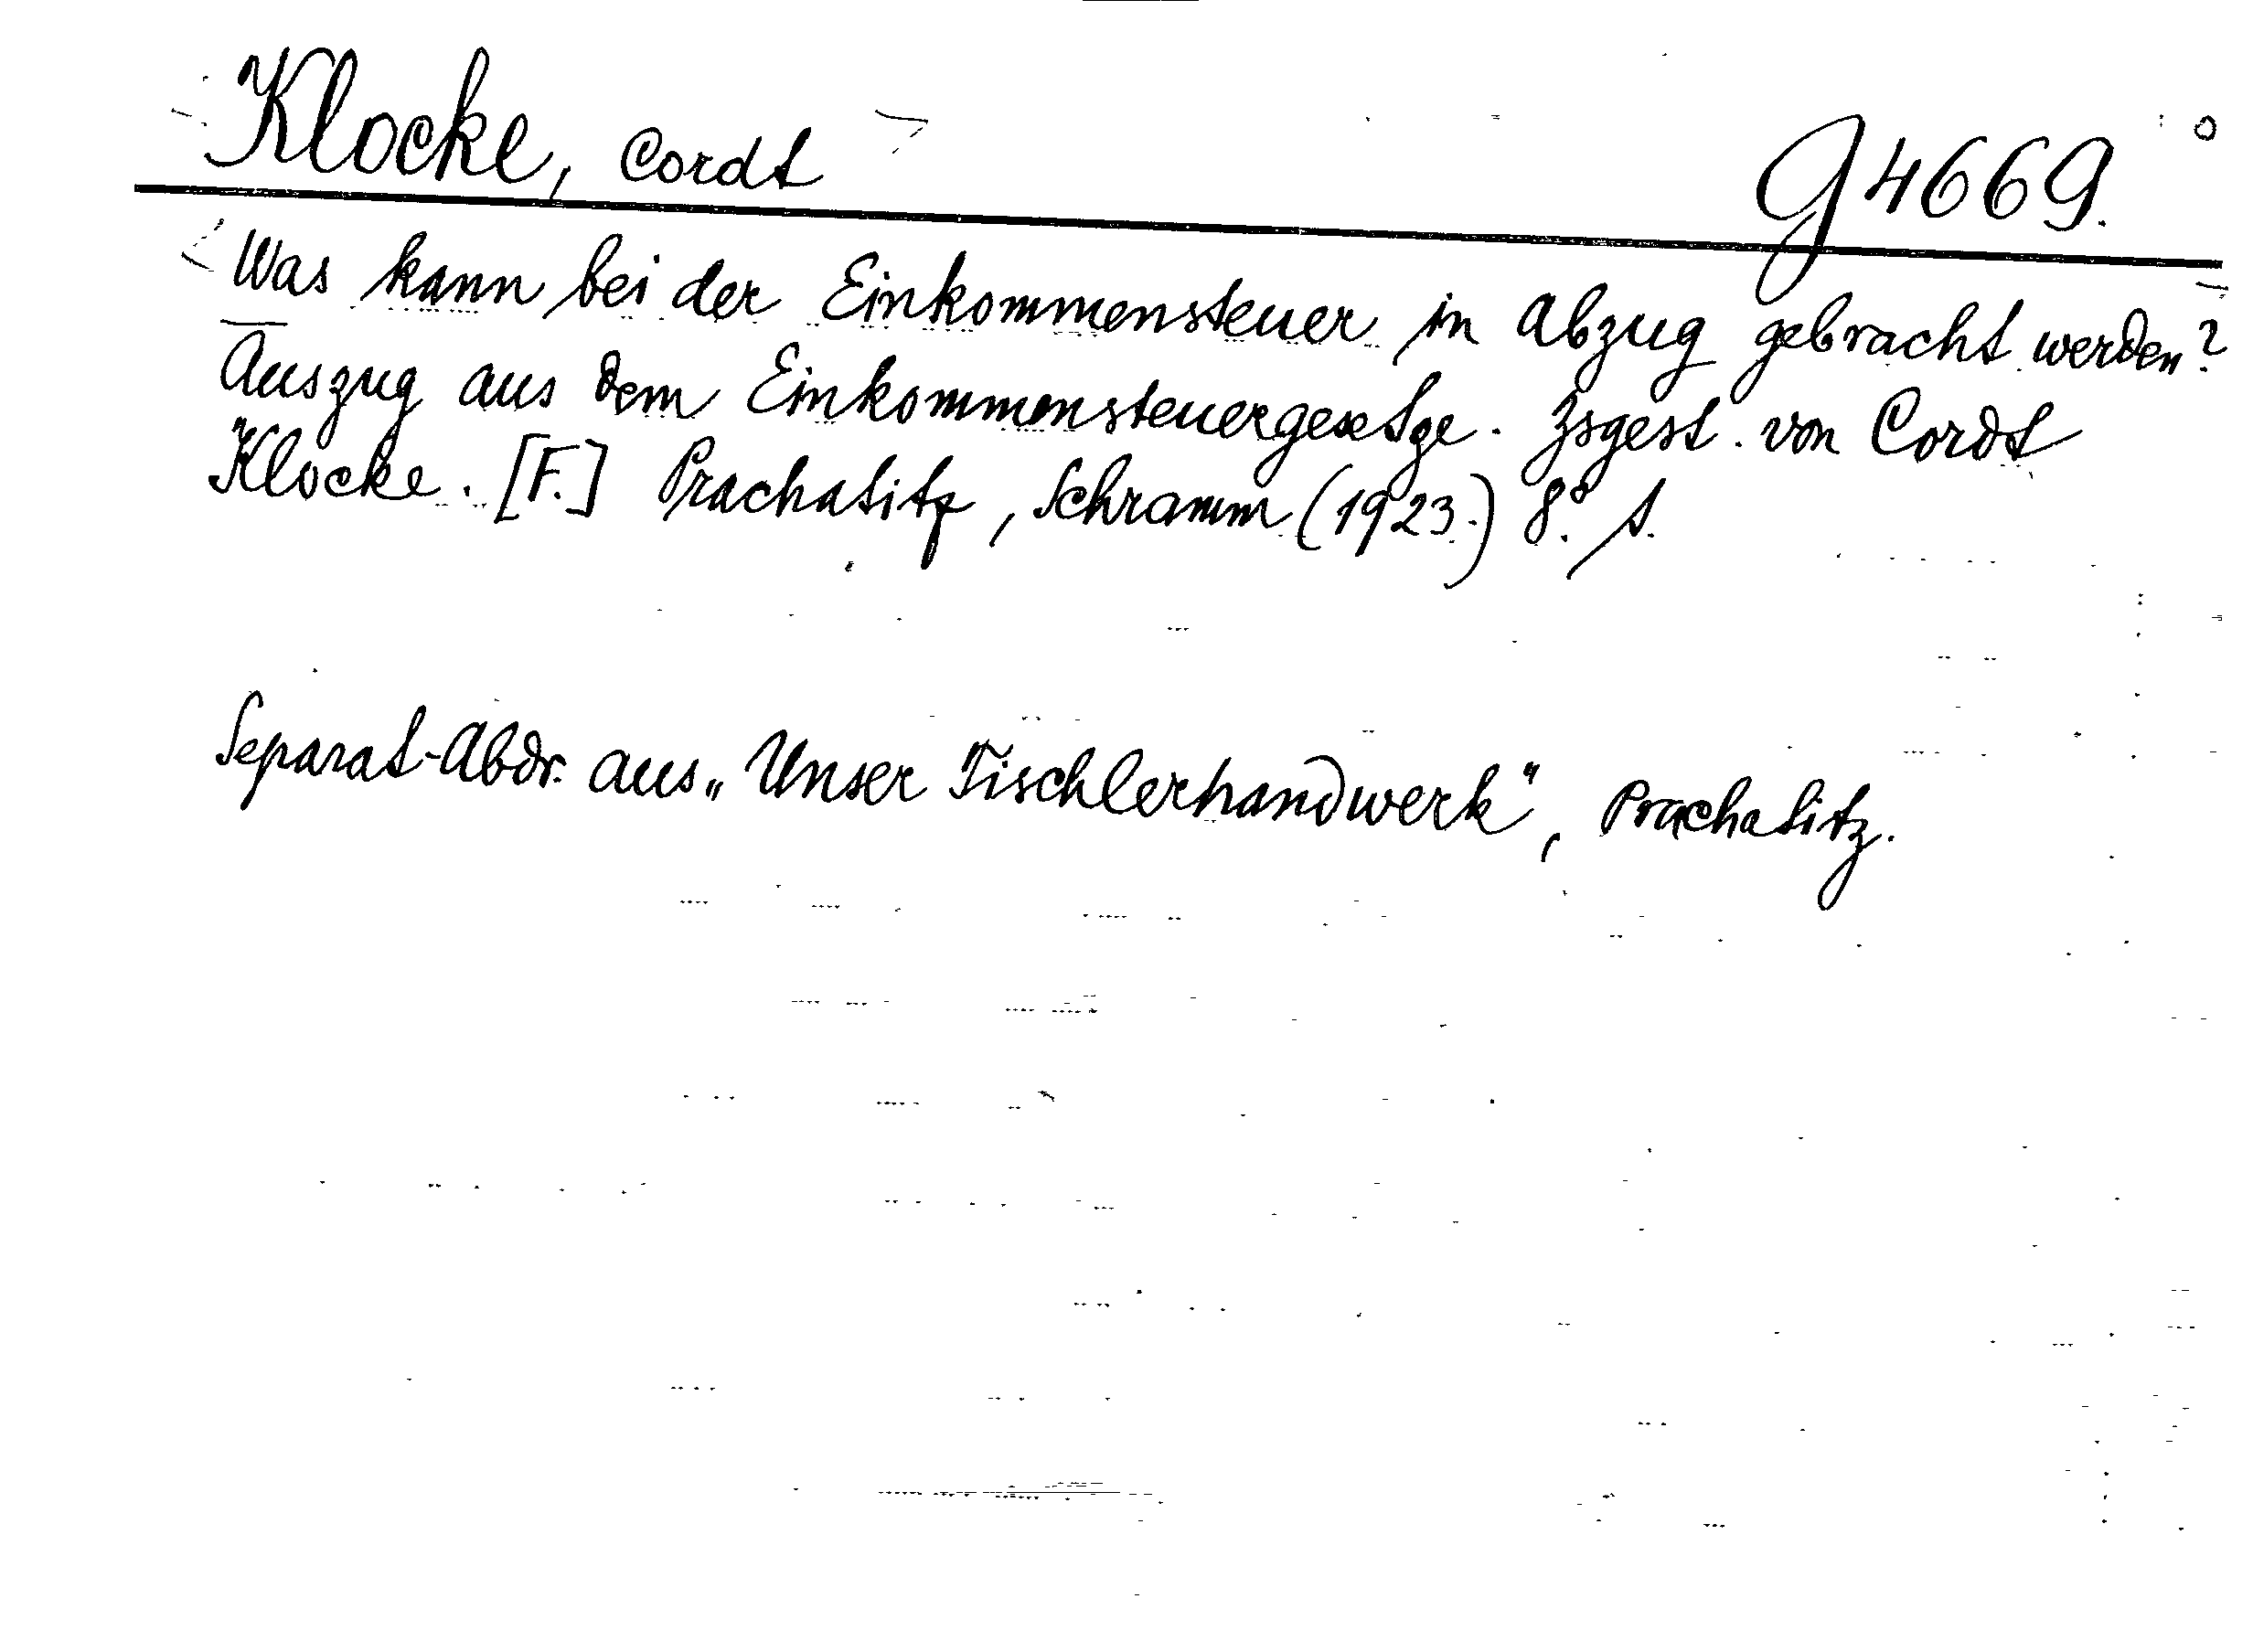 Klocke, Cordt
G 4669.
Was kann bei der Einkommensteuer in Abzug gebracht werden?
Auszug aus dem Einkommensteuergesetze. Zsgest. von Cordt
Klocke. [F.] Prachatitz, Schramm (1923.) 8°. S.
Separat-Abdr. aus „Unser Tischlerhandwerk", Prachatitz.